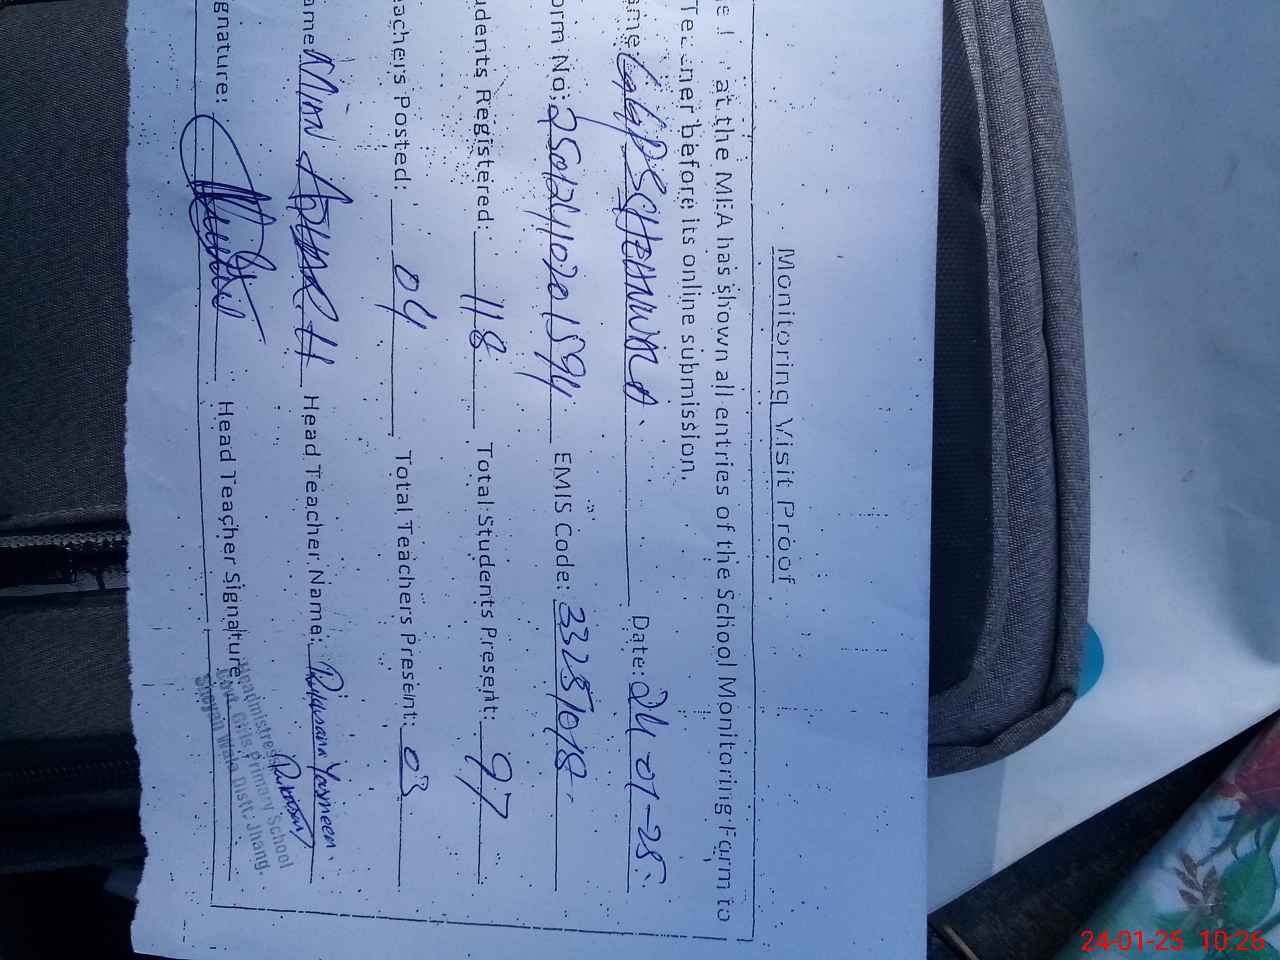 Monitoring Visit Proof
at the MEA has shown all entries of the School Monitoring Form to
before its online submission.
ame: Date: 24-01-25
orm No: 250124110201594 EMIS Code: 33251018
udents Registered: 118 Total Students Present: 97
eachers Posted: 04 Total Teachers Present: 03
ame Head Teacher Name: Yasmeen
gnature: Head Teacher Signature
Headmistress
Govt. Girls Primary School
Wala Distt: Jhang.
24-01-25 10:26